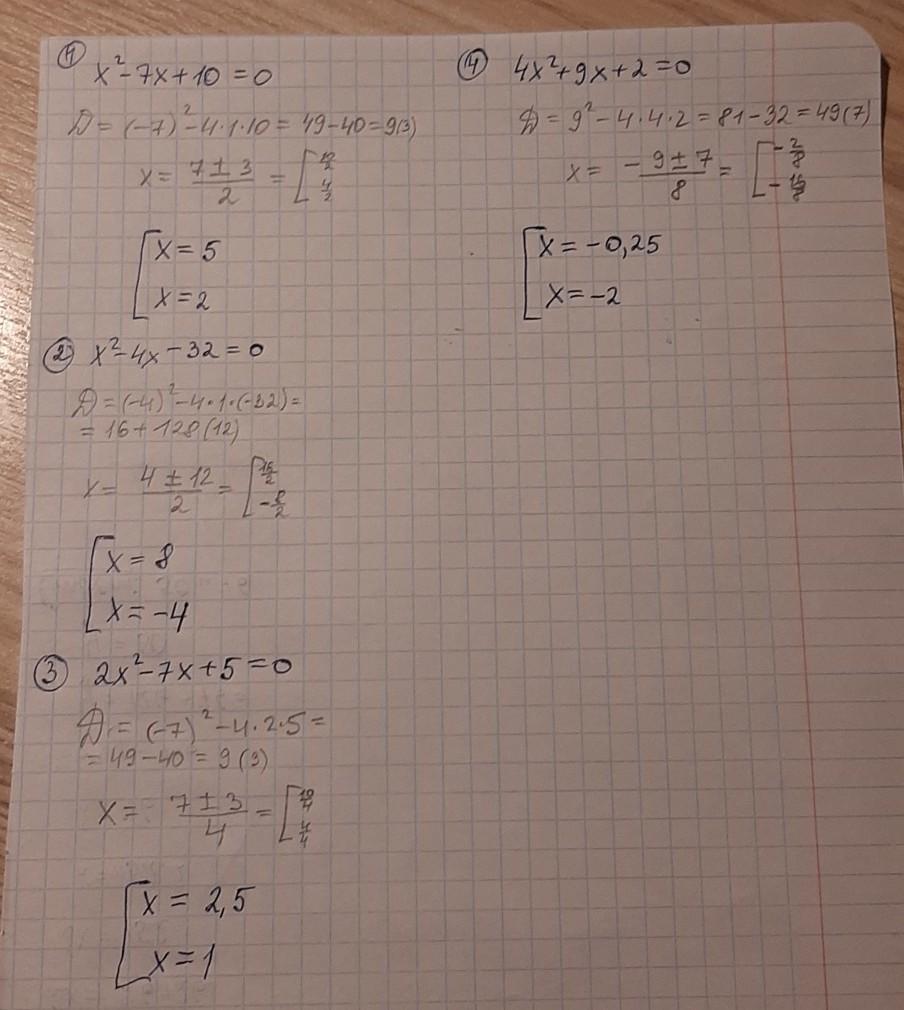 1 x²-7x+10=0
D=(-7)²-4·1·10=49-40=9(3)
x= 7±3/2 = [10/2
4/2
[x=5
x=2
2 x²-4x-32=0
D=(-4)²-4·1·(-32)=
=16+128(12)
x= 4±12/2 = [16/2
-8/2
[x=8
x=-4
3 2x²-7x+5=0
D=(-7)²-4·2·5=
=49-40=9(3)
x= 7±3/4 = [10/4
4/4
[x=2,5
x=1
4 4x²+9x+2=0
D=9²-4·4·2=81-32=49(7)
x= -9±7/8 = [-2/8
-16/8
[x=-0,25
x=-2